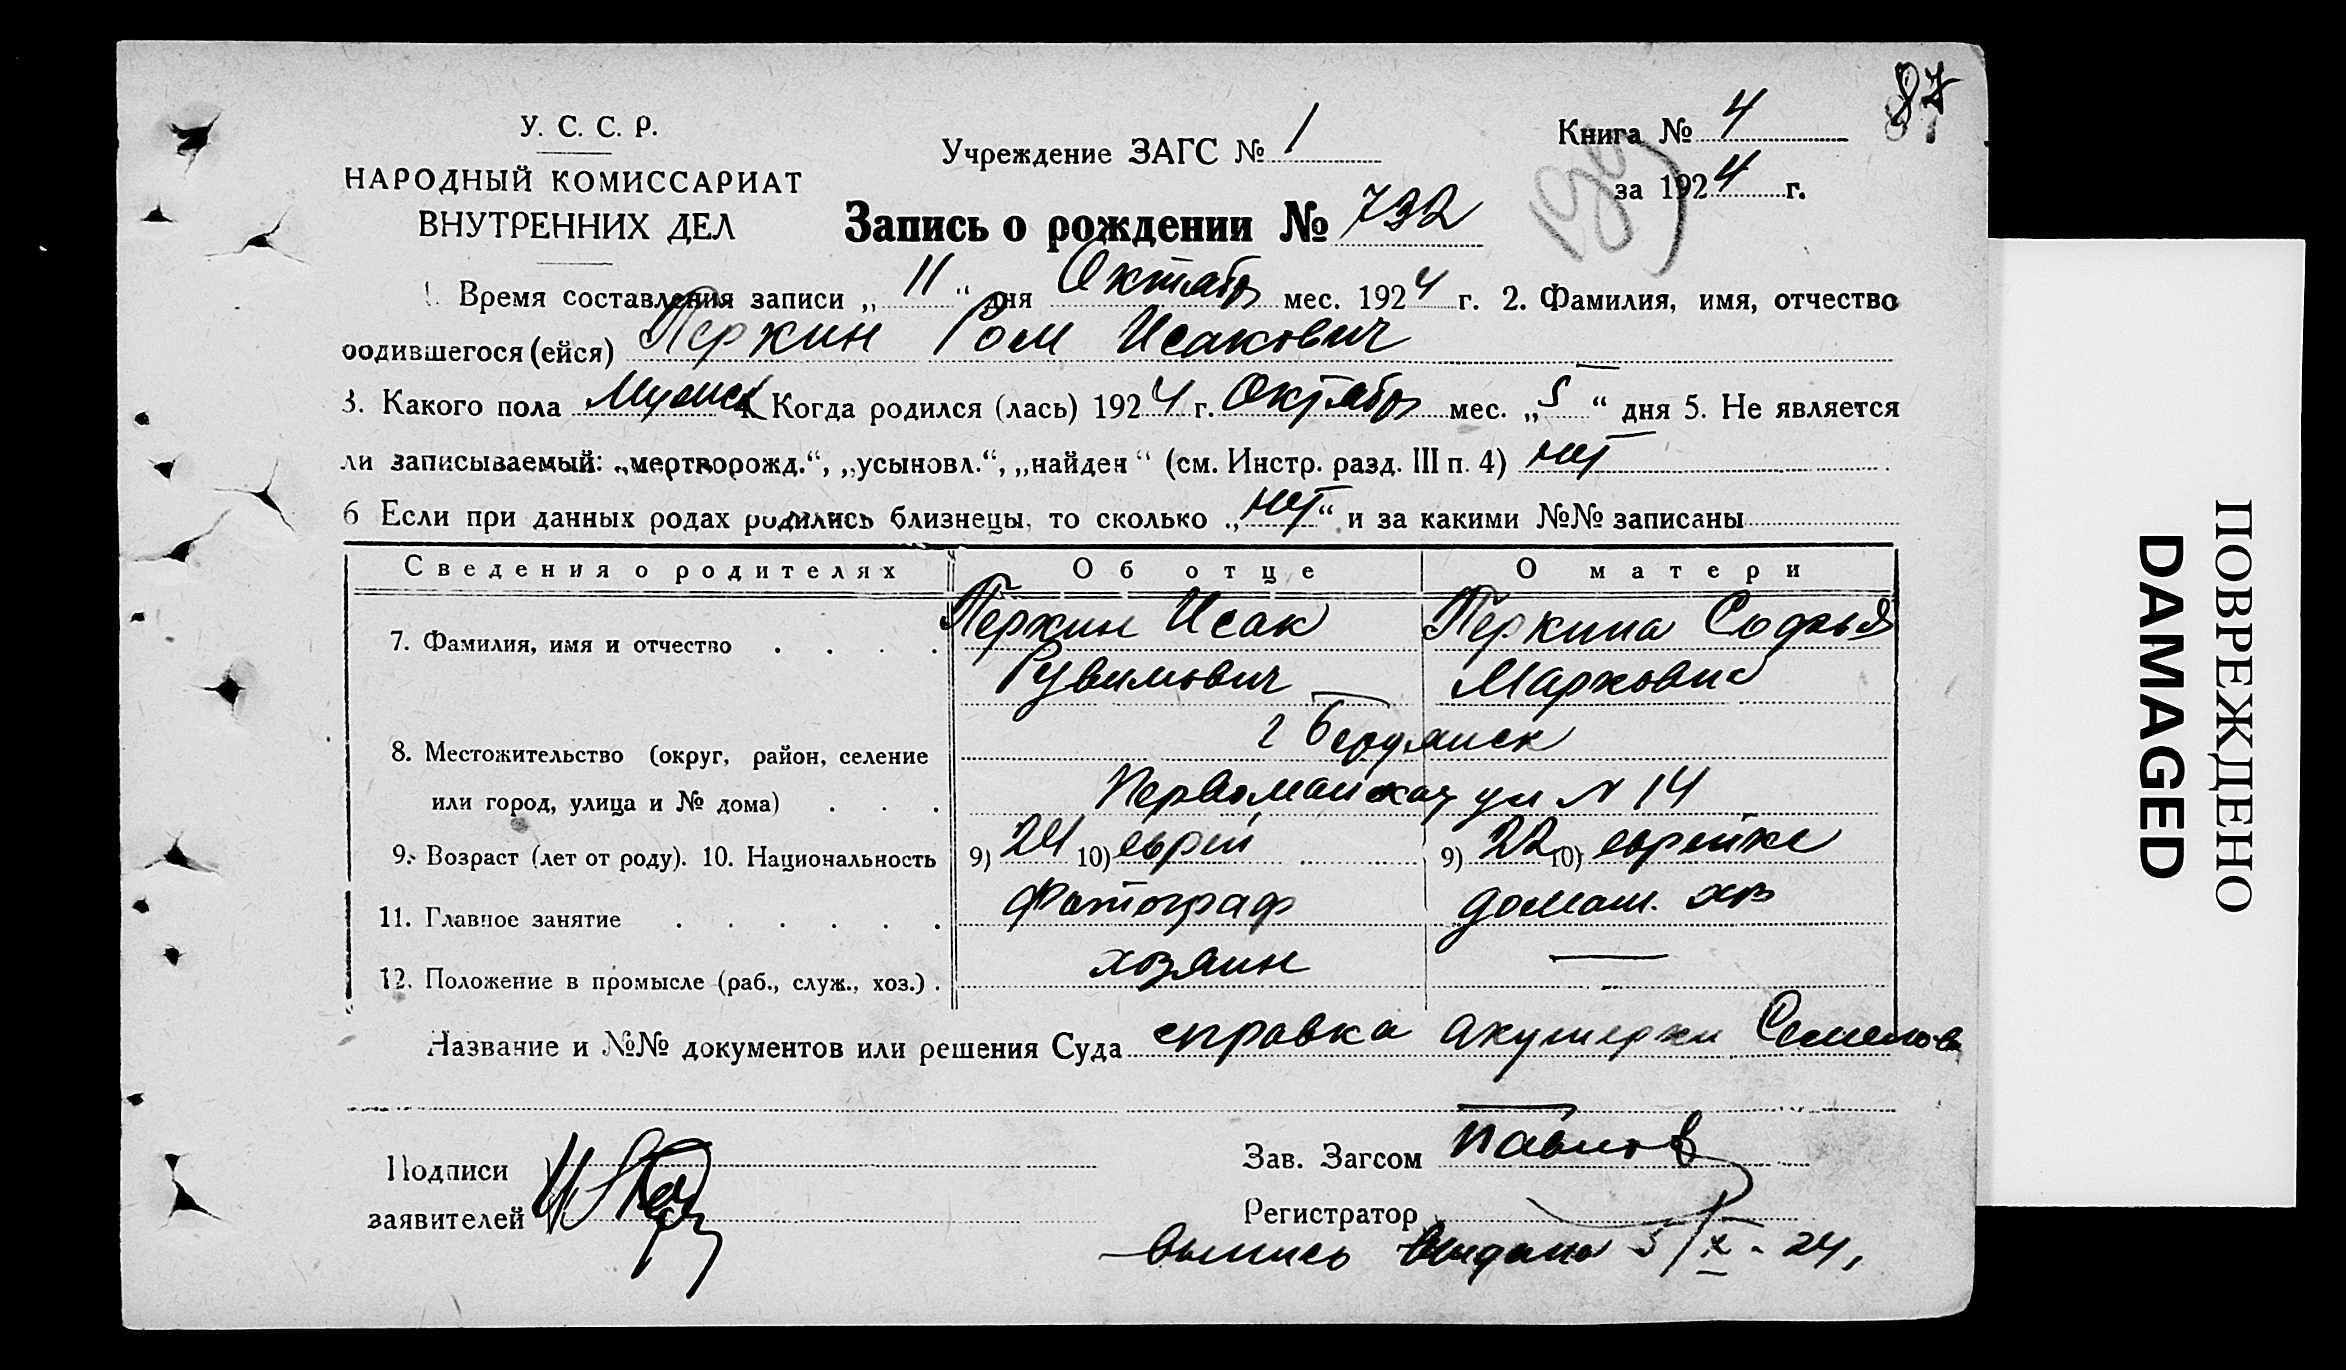 87
У. С. С. Р.
НАРОДНЫЙ КОМИССАРИАТ
ВНУТРЕННИХ ДЕЛ
Учреждение ЗАГС № 1
Книга № 4
за 1924 г.
Запись о рождении № 732
1. Время составления записи „ 11 “ дня Октябр мес. 1924 г. 2. Фамилия, имя, отчество
родившегося (ейся) Перкин Ром Исакович
3. Какого пола Мужск 4. Когда родился (лась) 1924 г. Октябр мес. „ 5 “ дня 5. Не является
ли записываемый: „мертворожд.“, „усыновл.“, „найден“ (см. Инстр. разд. III п. 4) нет
6 Если при данных родах родились близнецы, то сколько „ нет “ и за какими №№ записаны
Сведения о родителях Об отце О матери
7. Фамилия, имя и отчество . . . . Перкин Исак Перкина Софья
Рувимович Марковна
г Бердянск
8. Местожительство (округ, район, селение
или город, улица и № дома) . . . Первомайская ул N 14
9. Возраст (лет от роду). 10. Национальность 9) 24 10) еврей 9) 22 10) еврейка
11. Главное занятие . . . . . . Фотограф домаш. хоз
12. Положение в промысле (раб., служ., хоз.) . хозяин —
Название и №№ документов или решения Суда справка акушерки Семенова
Подписи
заявителей
Зав. Загсом Павлов
Регистратор
выпись выдана 5/X - 24,
ПОВРЕЖДЕНО
DAMAGED